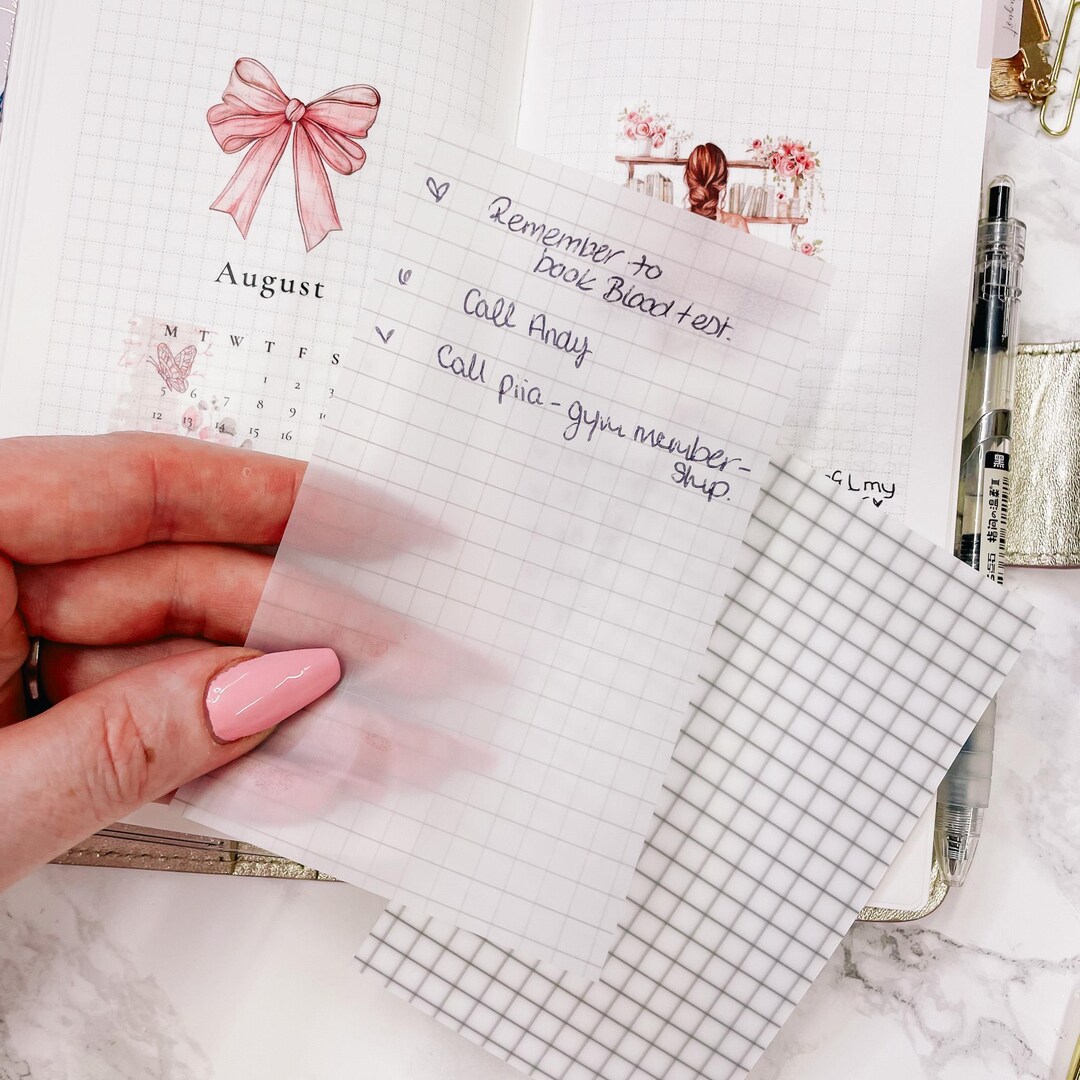 August
M T W T F S
1 2 3
5 6 7 8 9
12 13 14 15 16
Remember to
book Blood test.
Call Andy
Call piia - gym member-
ship.
黒